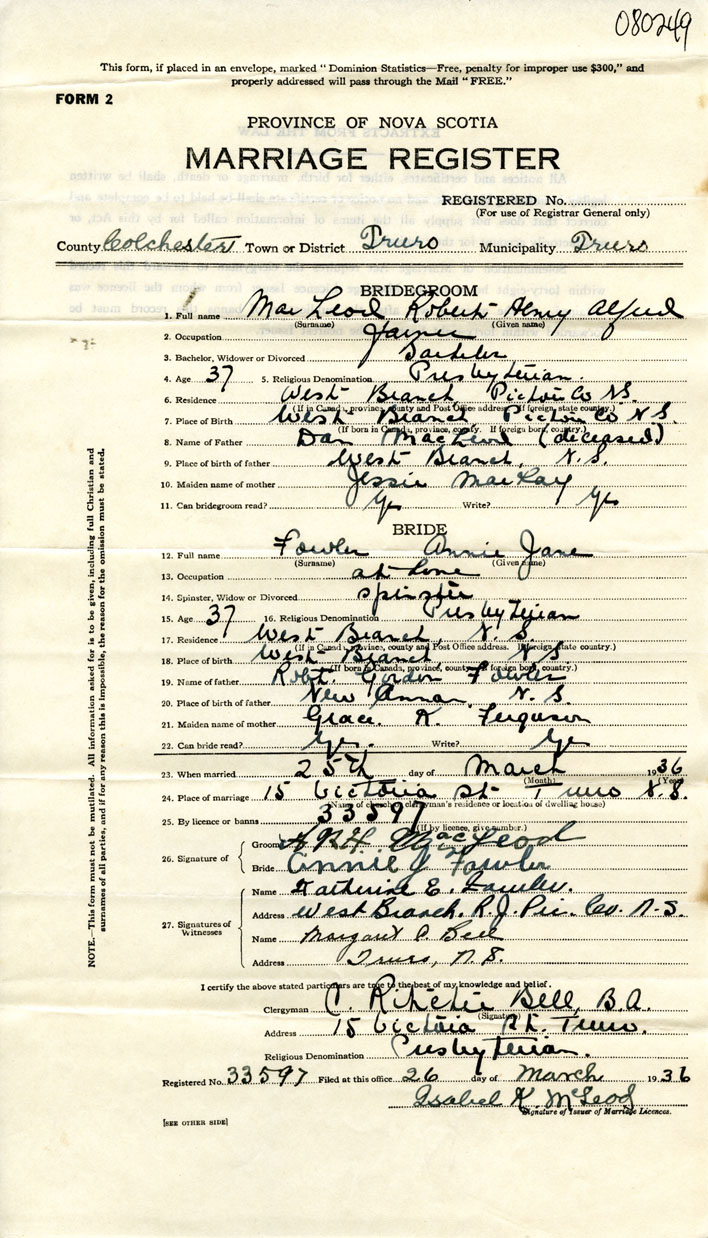 080249
This form, if placed in an envelope, marked "Dominion Statistics—Free, penalty for improper use $300," and
properly addressed will pass through the Mail "FREE."
FORM 2
PROVINCE OF NOVA SCOTIA
MARRIAGE REGISTER
REGISTERED No.
(For use of Registrar General only)
County Colchester Town or District Truro Municipality Truro
BRIDEGROOM
1. Full name Mac Leod Robert Henry Alfred
(Surname) (Given name)
2. Occupation Farmer
3. Bachelor, Widower or Divorced Bachelor
4. Age 37 5. Religious Denomination Presbyterian.
6. Residence West Branch Pictou Co N.S.
(If in Canada, province, county and Post Office address. If foreign, state country.)
7. Place of Birth West Branch Pictou Co N.S.
(If born in Canada, province, county. If foreign born, country.)
8. Name of Father Dan MacLeod (deceased)
9. Place of birth of father West Branch, N.S.
10. Maiden name of mother Jessie MacKay
11. Can bridegroom read? Yes Write? Yes
BRIDE
12. Full name Fowler Annie Jane
(Surname) (Given name)
13. Occupation at home
14. Spinster, Widow or Divorced spinster
15. Age 37 16. Religious Denomination Presbyterian
17. Residence West Branch, N.S.
(If in Canada, province, county and Post Office address. If foreign, state country.)
18. Place of birth West Branch N S
(If born in Canada, province, county. If foreign born, country.)
19. Name of father Robt. Gordon Fowler
20. Place of birth of father New Annan, N.S.
21. Maiden name of mother Grace K. Ferguson
22. Can bride read? Yes. Write? Yes
23. When married 25th day of March 1936
(Month) (Year)
24. Place of marriage 15 Victoria St. Truro N.S.
(Name of church, clergyman's residence or location of dwelling house)
25. By licence or banns 33597
(If by licence, give number.)
26. Signature of Groom MacLeod
Bride Annie J Fowler
27. Signatures of Witnesses
Name Katherine E. Fowler.
Address West Branch. R.J. Pic. Co. N.S.
Name Margaret A. Bell
Address Truro, N.S.
I certify the above stated particulars are true to the best of my knowledge and belief.
Clergyman C. Ritchie Bell, B.A.
(Signature)
Address 15 Victoria St. Truro.
Religious Denomination Presbyterian.
Registered No. 33597 Filed at this office 26 day of March 1936
Isabel K. McLeod
Signature of Issuer of Marriage Licences.
[SEE OTHER SIDE]
NOTE.—This form must not be mutilated. All information asked for is to be given, including full Christian and
surnames of all parties, and if for any reason this is impossible, the reason for the omission must be stated.